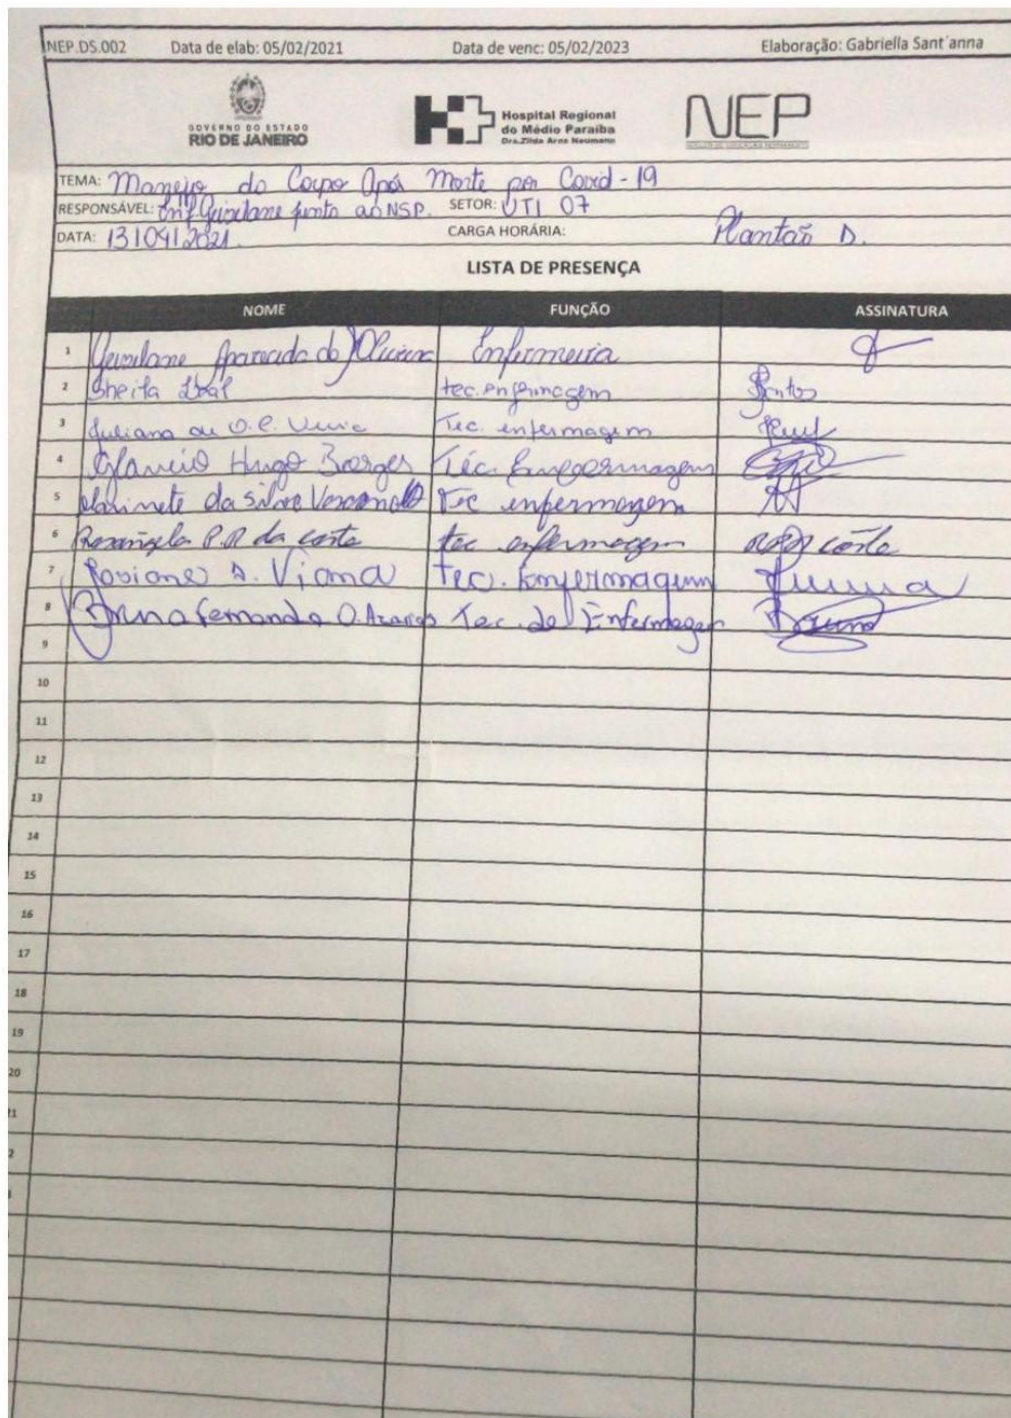 NEP.DS.002 Data de elab: 05/02/2021 Data de venc: 05/02/2023 Elaboração: Gabriella Sant´anna
GOVERNO DO ESTADO
RIO DE JANEIRO
Hospital Regional
do Médio Paraíba
Dra.Zilda Arns Neumann
NEP
TEMA: Manejo do Corpo Após Morte por Covid-19
RESPONSÁVEL: Enf. Geiselane junto ao NSP. SETOR: UTI 07
DATA: 13/04/2021. CARGA HORÁRIA: Plantão D.
LISTA DE PRESENÇA
NOME FUNÇÃO ASSINATURA
1 Geiselane Aparecida de Oliveira Enfermeira
2 Sheila Leal tec. enfermagem
3 Juliana de O. C. Tec. enfermagem
4 Glaucio Hugo Borges Téc. Enfermagem
5 da Silva Tec enfermagem
6 Rosangela P.R da Costa tec enfermagem Costa
7 Rosiane A. Viana Tec. Enfermagem
8 Bruna Fernanda O. Tec. de Enfermagem Bruna
9
10
11
12
13
14
15
16
17
18
19
20